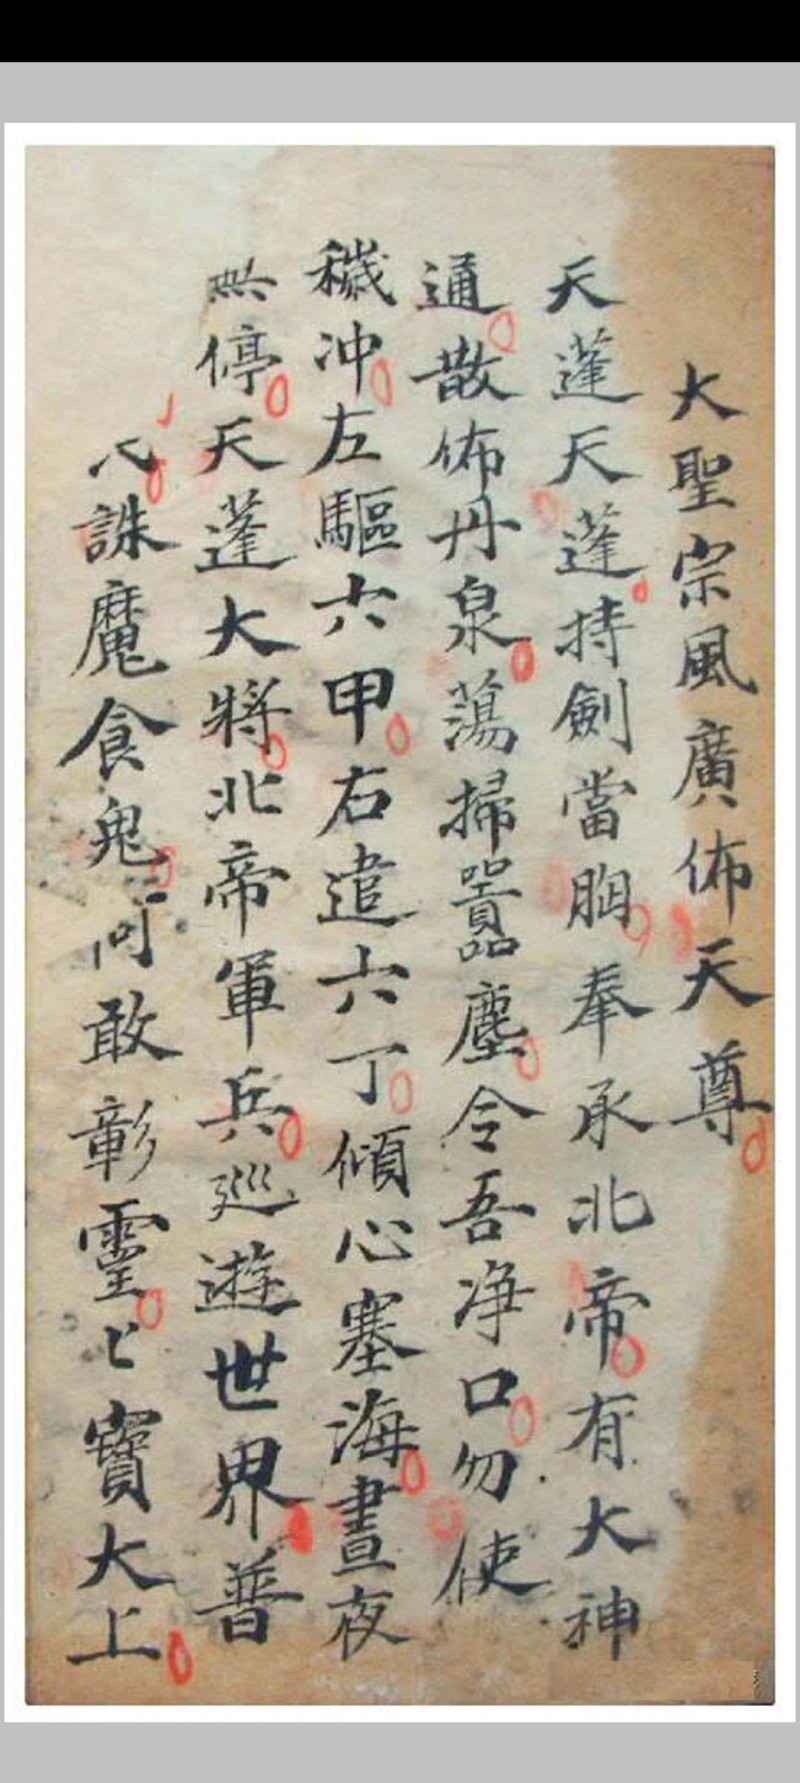 大聖宗風廣佈天尊
天蓬天蓬持劍當胸奉承北帝有大神
通散佈丹泉蕩掃囂塵令吾净口勿使
穢冲左驅六甲右遣六丁傾心塞海晝夜
停天蓬大將北帝軍兵巡遊世界普
誅魔食鬼何敢彰靈匕寶大上